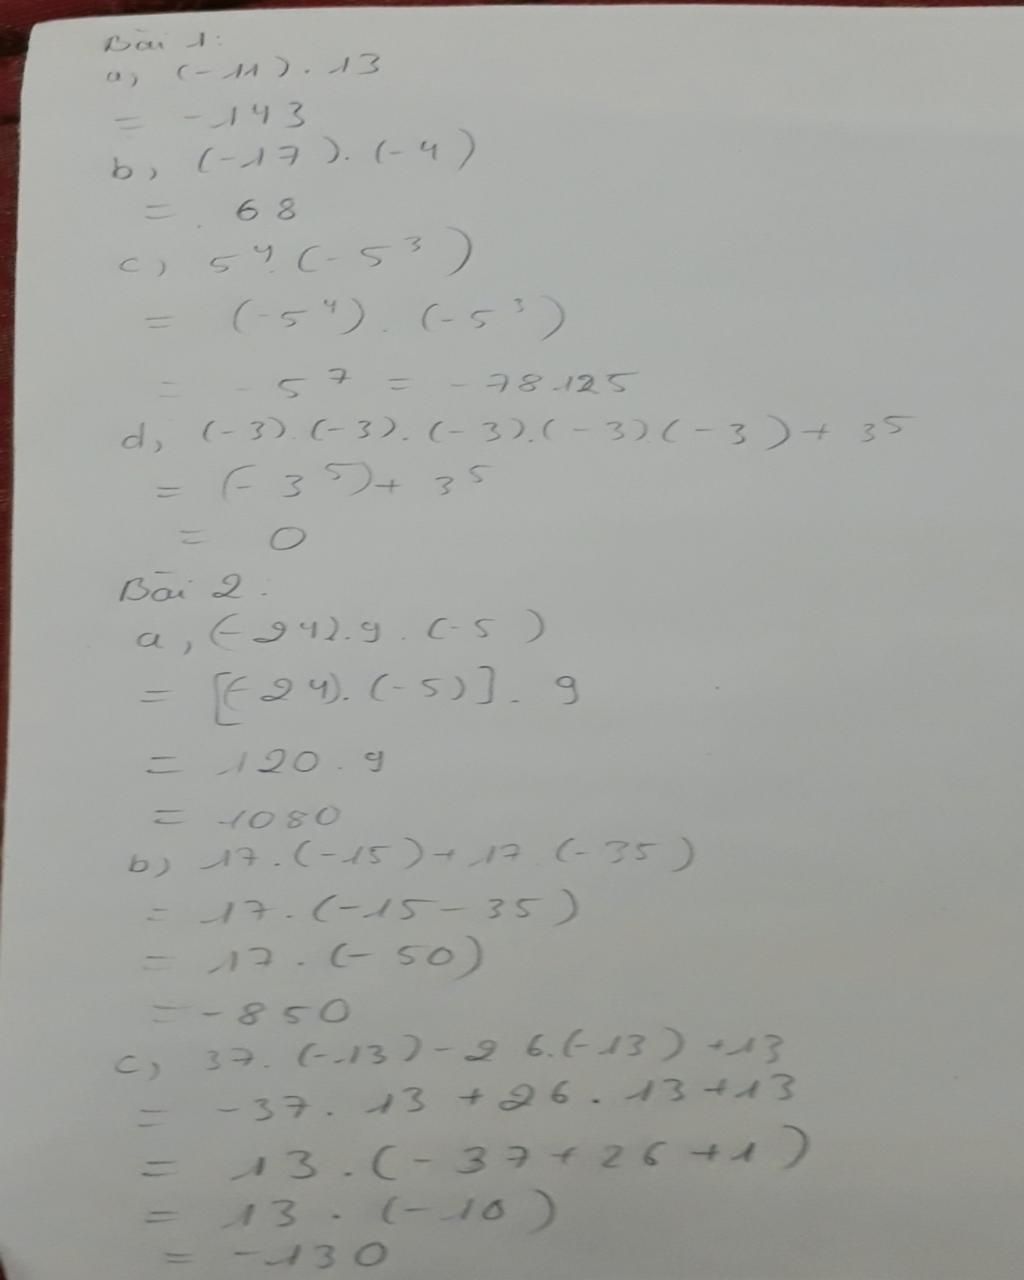 Bài 1:
a, (-11). 13
= -143
b, (-17). (-4)
= 68
c, 5⁴. (-5³)
= (-5⁴). (-5³)
= -5⁷ = -78125
d, (-3).(-3).(-3).(-3)(-3) + 3⁵
= (-3⁵) + 3⁵
= 0
Bài 2:
a, (-24). 9. (-5)
= [(-24). (-5)]. 9
= 120. 9
= 1080
b, 17. (-15) + 17. (-35)
= 17. (-15 - 35)
= 17. (-50)
= -850
c, 37. (-13) - 26. (-13) + 13
= -37. 13 + 26. 13 + 13
= 13. (-37 + 26 + 1)
= 13. (-10)
= -130